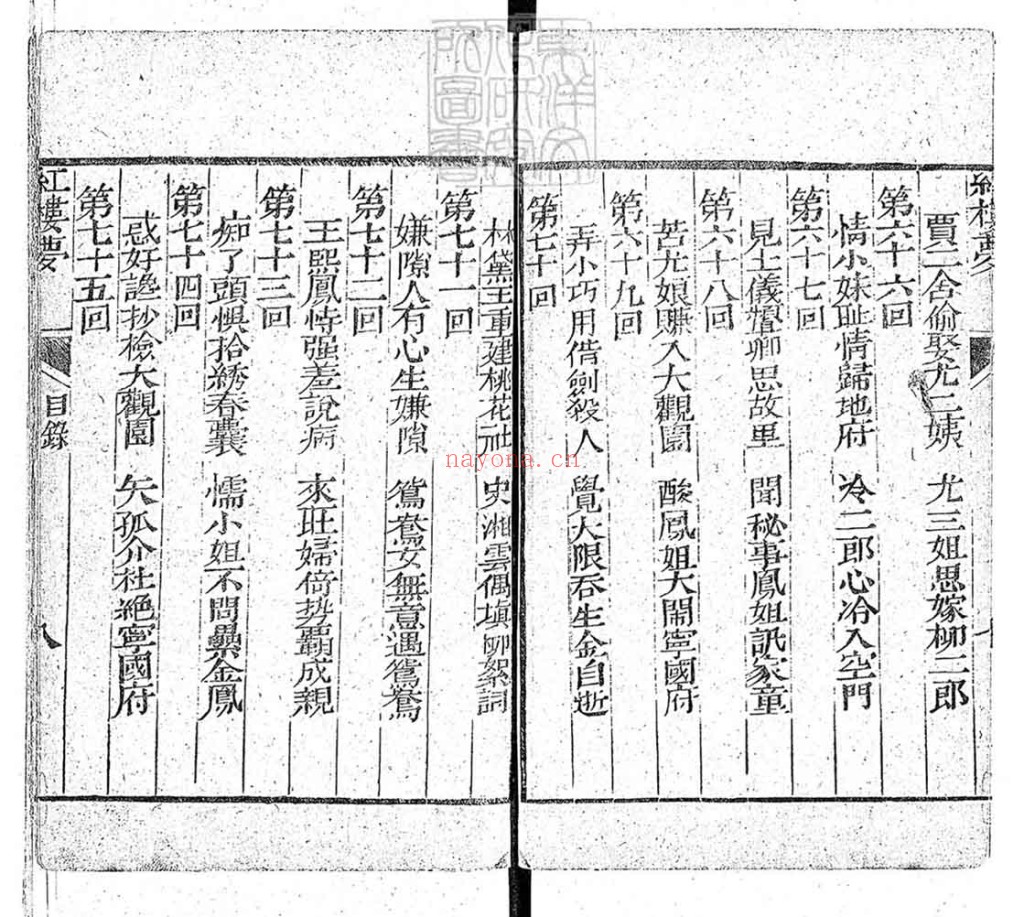 賈二舍偷娶尤二姨　尤三姐思嫁柳二郎
第六十六回
情小妹耻情歸地府　冷二郎心冷入空門
第六十七回
見土儀顰卿思故里　聞秘事鳳姐訊家童
第六十八回
苦尤娘賺入大觀園　酸鳳姐大閙寧國府
第六十九回
弄小巧用借劍殺人　覺大限吞生金自逝
第七十回
林黛玉重建桃花社　史湘雲偶填柳絮詞
第七十一回
嫌隙人有心生嫌隙　鴛鴦女無意遇鴛鴦
第七十二回
王熙鳳恃强羞說病　來旺婦倚勢霸成親
第七十三回
痴了頭懼拾綉春囊　懦小姐不問纍金鳳
第七十四回
惑奸讒抄檢大觀園　矢孤介杜絕寧國府
第七十五回
紅樓夢
目錄
八
東洋文化研究所圖書
nayona.cn